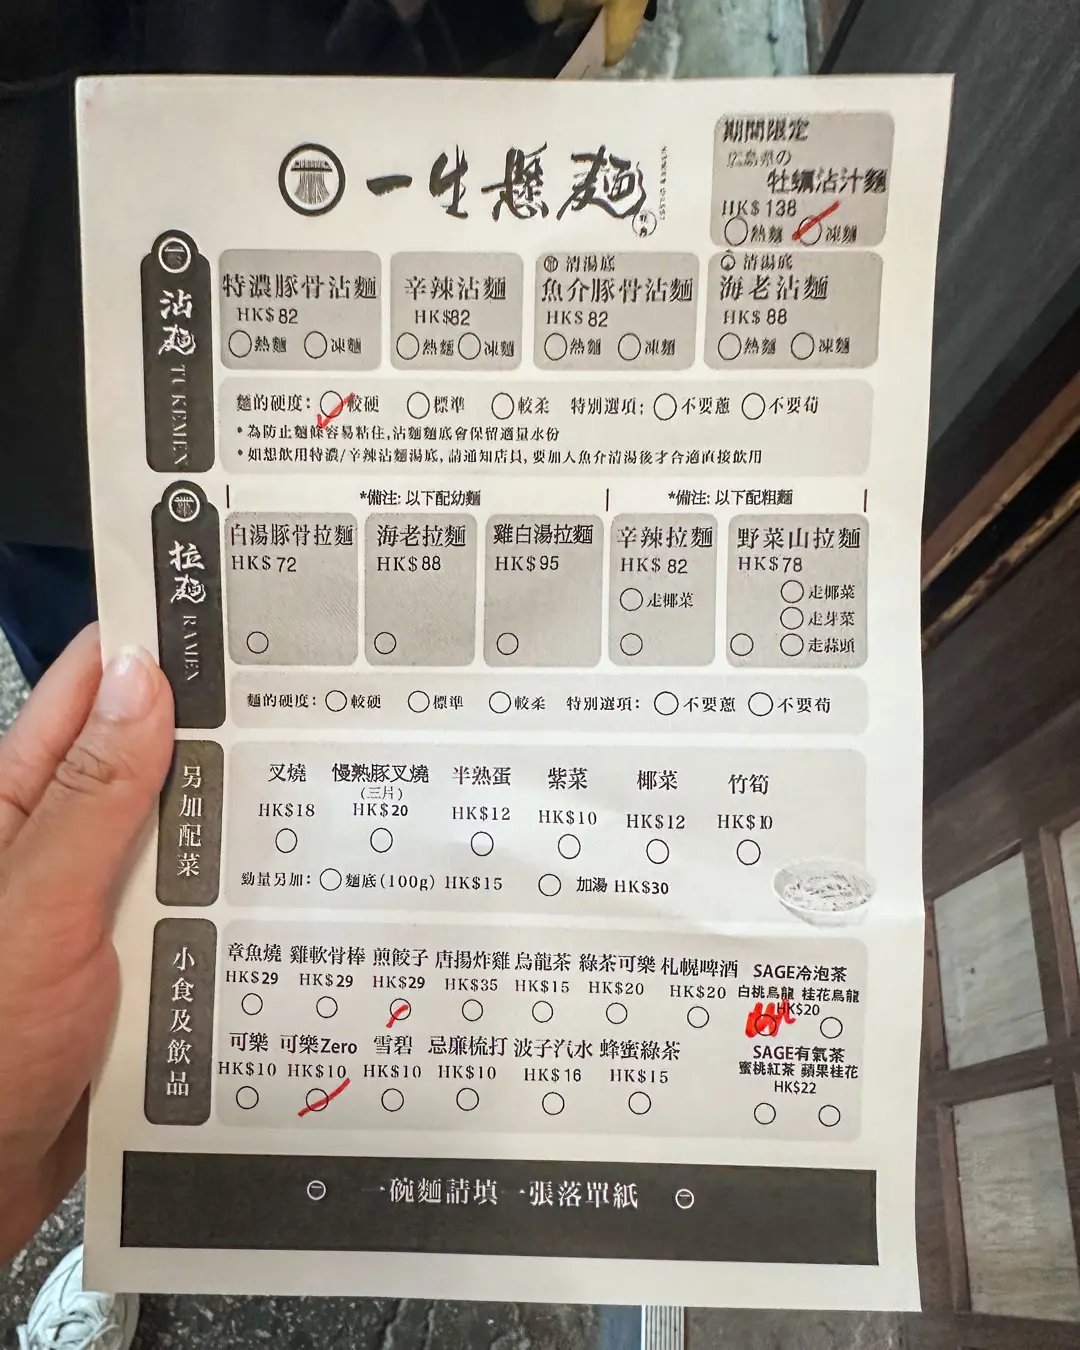 一生懸麵
期間限定
広島県の
牡蠣沾汁麵
HK$138
熱麵 凍麵
沾麵 TUKEMEN
特濃豚骨沾麵
HK$82
熱麵 凍麵
辛辣沾麵
HK$82
熱麵 凍麵
清湯底
魚介豚骨沾麵
HK$82
熱麵 凍麵
清湯底
海老沾麵
HK$88
熱麵 凍麵
麵的硬度: 較硬 標準 較柔 特別選項: 不要蔥 不要荀
•為防止麵條容易粘住,沾麵麵底會保留適量水份
•如想飲用特濃/辛辣沾麵湯底,請通知店員,要加入魚介清湯後才合適直接飲用
拉麵 RAMEN
*備注: 以下配幼麵
*備注: 以下配粗麵
白湯豚骨拉麵
HK$72
海老拉麵
HK$88
雞白湯拉麵
HK$95
辛辣拉麵
HK$82
走椰菜
野菜山拉麵
HK$78
走椰菜
走芽菜
走蒜頭
麵的硬度: 較硬 標準 較柔 特別選項: 不要蔥 不要荀
另加配菜
叉燒 慢熟豚叉燒 半熟蛋 紫菜 椰菜 竹筍
(三片)
HK$18 HK$20 HK$12 HK$10 HK$12 HK$10
勁量另加: 麵底(100g) HK$15 加湯 HK$30
小食及飲品
章魚燒 雞軟骨棒 煎餃子 唐揚炸雞 烏龍茶 綠茶可樂 札幌啤酒
HK$29 HK$29 HK$29 HK$35 HK$15 HK$20 HK$20
SAGE冷泡茶
白桃烏龍 桂花烏龍
HK$20
可樂 可樂Zero 雪碧 忌廉梳打 波子汽水 蜂蜜綠茶
HK$10 HK$10 HK$10 HK$10 HK$16 HK$15
SAGE有氣茶
蜜桃紅茶 蘋果桂花
HK$22
一碗麵請填一張落單紙